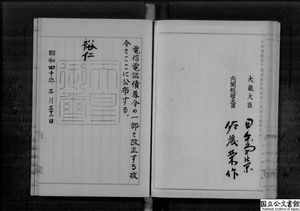 電信電話債券令の一部を改正する政
令をここに公布する。
裕仁
昭和四十年三月三十一日
大蔵大臣
田中角榮
内閣総理大臣
佐藤榮作
国立公文書館
National Archives of Japan